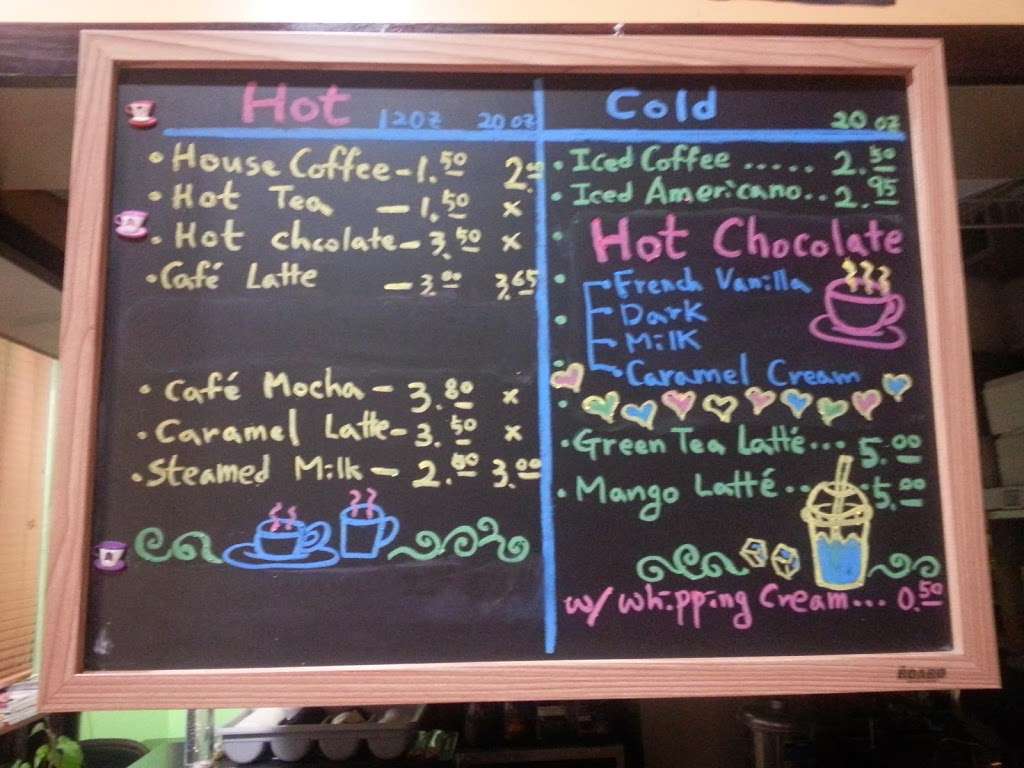 Hot 12oz 20oz
• House Coffee - 1.50 2.00
• Hot Tea - 1.50 x
• Hot chcolate - 3.50 x
• Café Latte - 3.00 3.65
• Café Mocha - 3.80 x
• Caramel Latte - 3.50 x
• Steamed Milk - 2.00 3.00
Cold 20 oz
• Iced Coffee ..... 2.50
• Iced Americano .. 2.95
Hot Chocolate
French Vanilla
Dark
Milk
Caramel Cream
• Green Tea Latté... 5.00
• Mango Latté.... 5.00
w/ whipping Cream... 0.50
BOARD